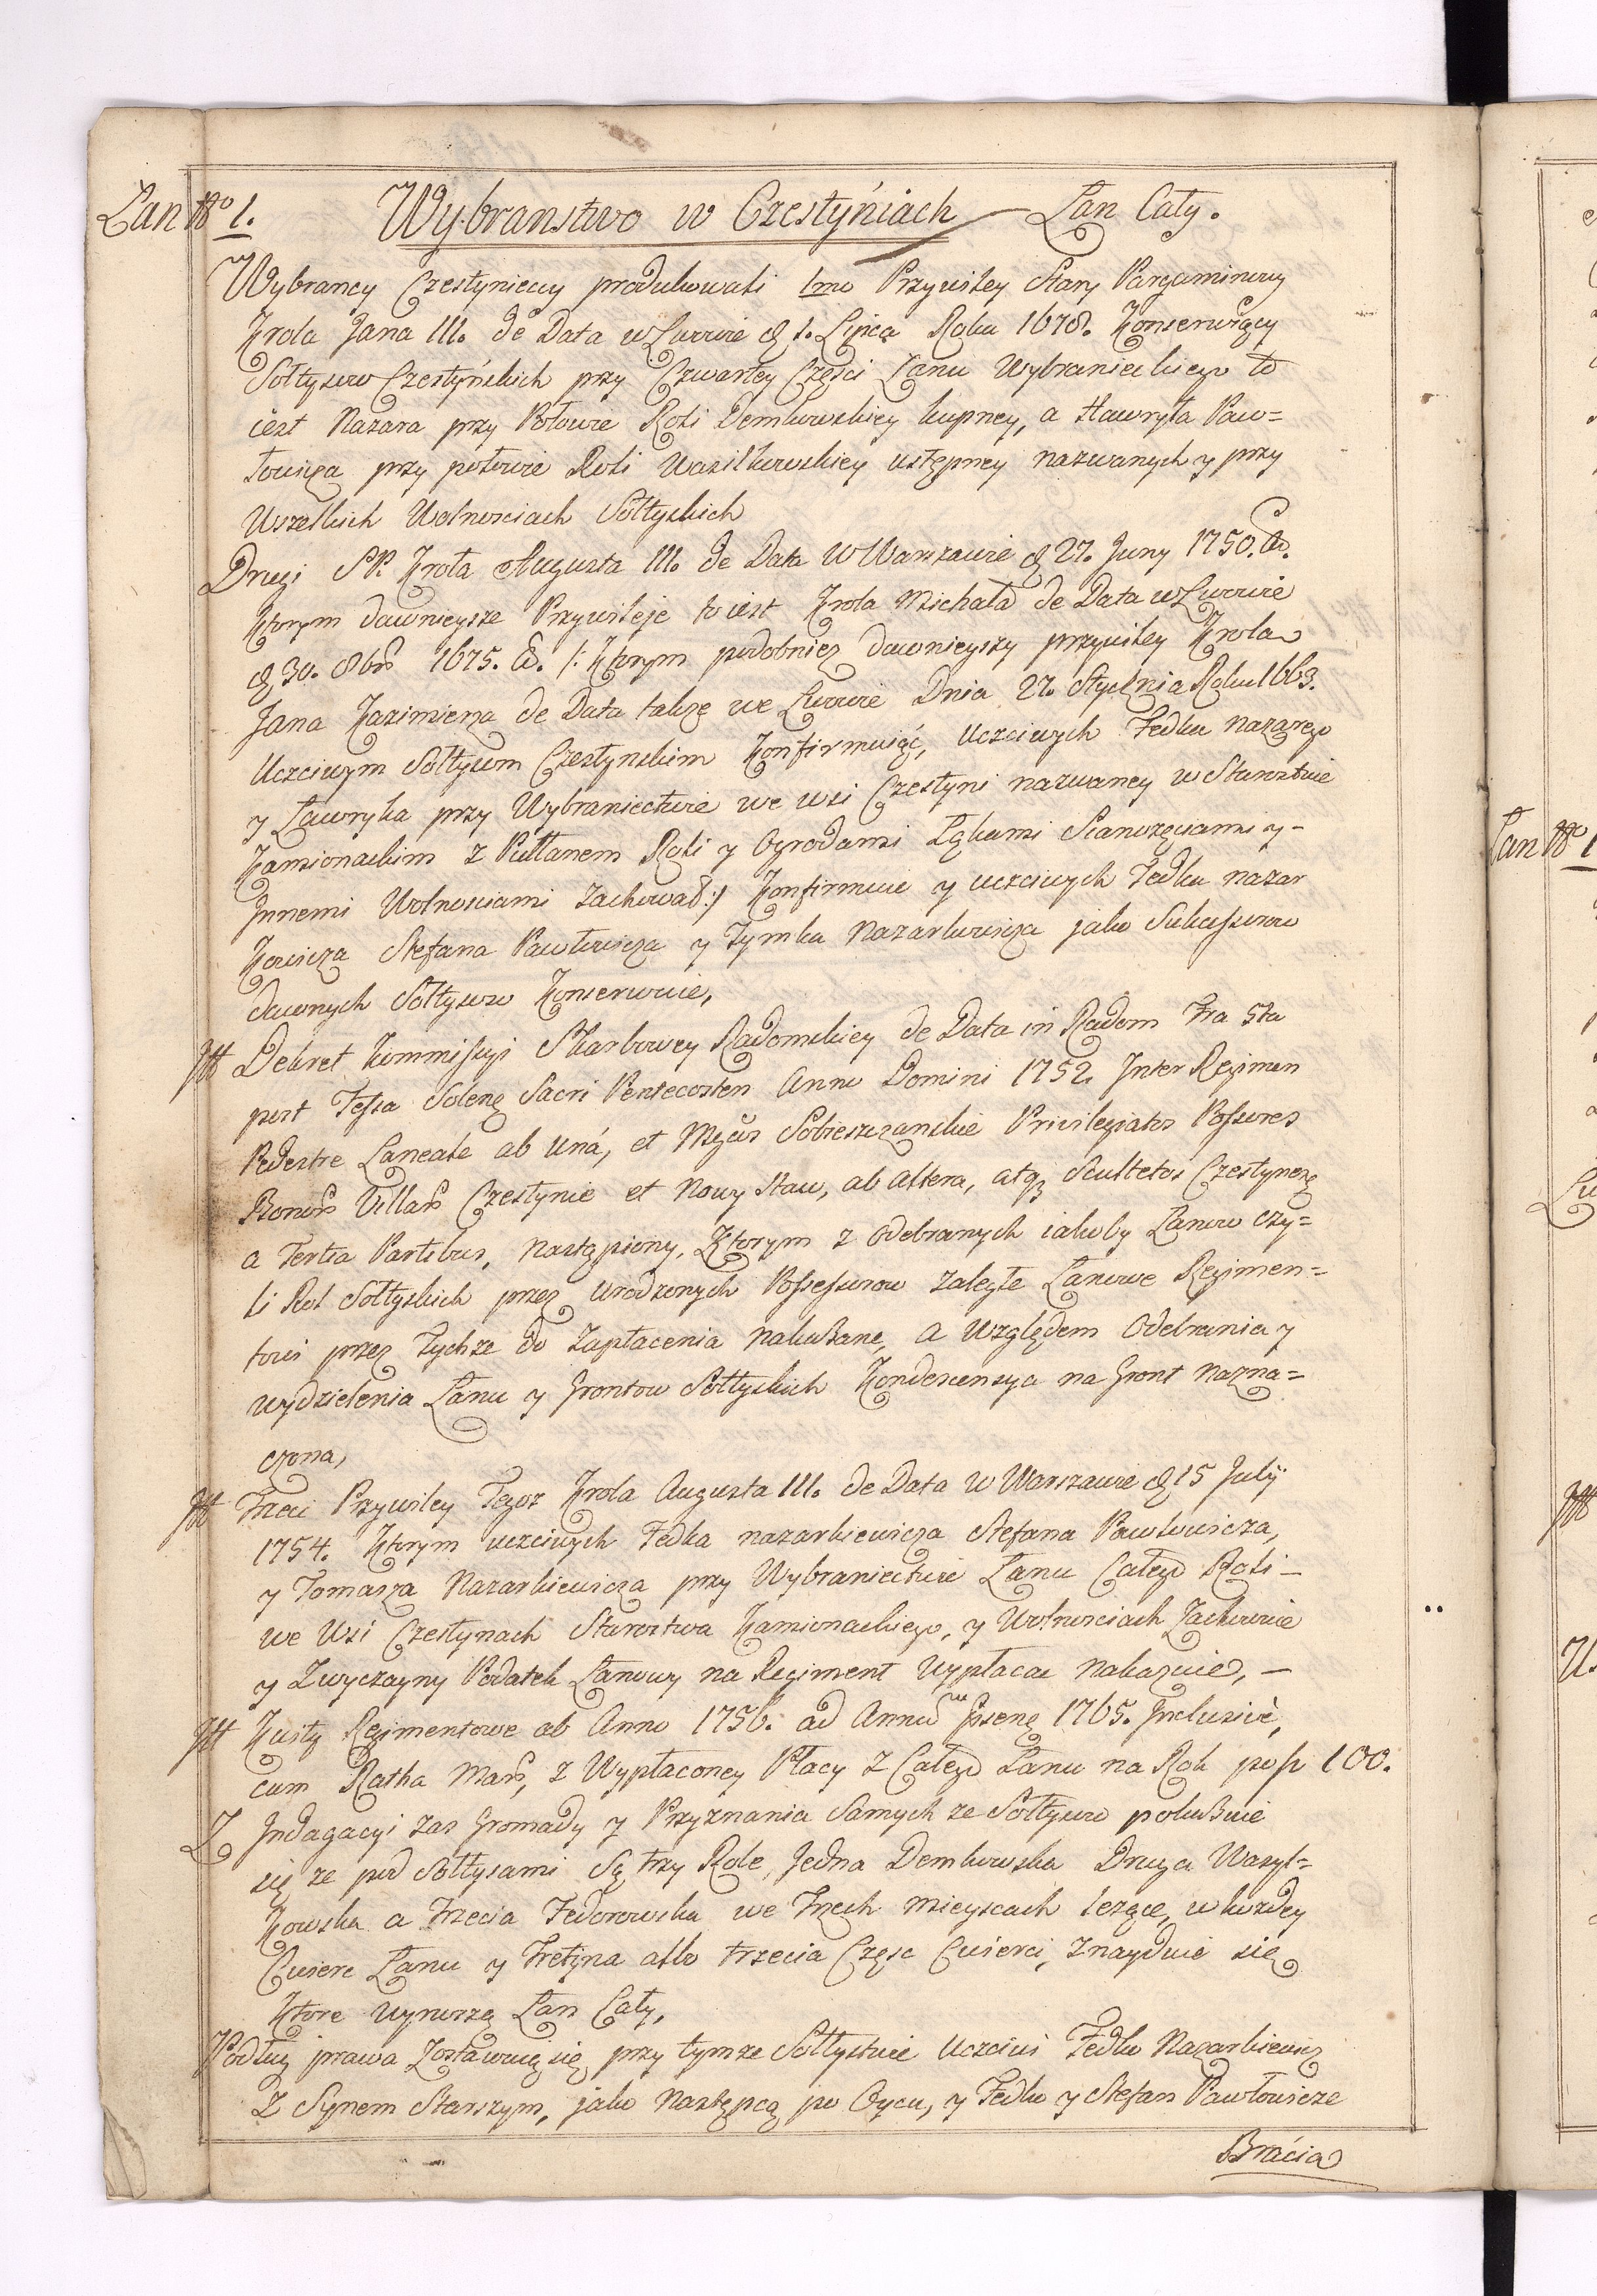 Łan N<sup>o</sup> 1. Wybranstwo w Czestyniach — Łan Cały.
Wybrancy Czestynieccy produkowali 1mo Przywiley Stary Pargaminowy
Krola Jana III. de Data w Lwowie d 1. Lipca Roku 1678. Konserwuiący
Sołtysow Czestyńskich przy Czwartey Części Łanu Wybranieckiego to
iest Nazara przy Połowie Roli Demkowskiey kupney, a Hawryła Paw=
łowicza przy połowie Roli Wasilkowskiey ustępney nazwanych y przy
Wszelkich Wolnosciach Sołtyskich
Drugi SP. Krola Augusta III. de Data w Warszawie d 27. Juny 1750.
Ktorym dawnieysze Przywileje to iest Krola Michała de Data w Lwowie
d 30. 8brs 1675. /: Ktorym podobniez dawnieyszy przywiley Krola
Jana Kazimierza de Data takze we Lwowie Dnia 27. Stycznia Roku 1663.
Uczciwym Sołtysom Czestynskim Konfirmuiąc, Uczciwych Fedka Nazarego
y Ławryka przy Wybraniectwie we wsi Czestyni nazwaney w Starostwie
Kamionackim z Pułłanem Roli y Ogrodami Łąkami Sianożęciami y-
Innemi Wolnosciami zachował :/ Konfirmuie y uczciwych Fedka nazar
Kowicza Stefana Pawłowicza y Tymka Nazarkowicza jako Sukcessorow
dawnych Sołtysow Konserwuie,
Itt Dekret Kommissyi Skarbowey Radomskiey de Data in Radom Fra 5ta
post Festa Solenę Sacri Pentecosten Anno Domini 1752. Inter Regimen
Pedestre Laneale ab Uná, et Mgcos Sobieszczanskie Privilegiatos Possores
Bonorum Villarum Czestynie et Nowy Staw, ab altera, atqz Scultetos Czestynenę
a Tertia Partibus, nastąpiony, Ktorym z Odebranych iakoby Łanow czy=
li Rol Sołtyskich przez Urodzonych Possessorow zaległe Łanowe Regimen=
towi przez Tychze do Zapłacenia nakazane, a Względem Odebrania y
wydzielenia Łanu y Grontow Sołtyskich Kondescensya na Gront nazna=
czona,
Itt Trzeci Przywiley Tegoz Krola Augusta III. de Data w Warszawie d 15 July
1754. Ktorym uczciwych Fedka nazarkiewicza Stefana Pawłowicza,
y Tomasza Nazarkiewicza przy Wybraniectwie Łanu Całego Roli —
we Wsi Czestynach Starostwa Kamionackiego, y Wolnosciach Zachowuie
y Zwyczayny Podatek Łanowy na Regiment Wypłacac nakazuie, —
Itt Kwity Regimentowe ab Anno 1756. ad Annum pssenę 1765. Inclusivè,
cum Ratha Mars, z Wypłaconey Płacy z Całego Łanu na Rok po fl 100.
Z Indagacyi zas Gromady y Przyznania Samych ze Sołtysow pokazuie
się ze pod Sołtysami Są trzy Role, Jedna Demkowska Druga Wasyl=
Kowska a Trzecia Fedorowska we Trzech mieyscach lezące, w kazdey
Cwierc Łanu y Tretyna albo trzecia Częsc Cwierci, znayduie się
Ktore wynoszą Łan Cały,
Podług prawa Zostawuią się przy tymze Sołtystwie Uczciwi Fedko Nazarkiewicz
Z Synem Starszym, jako Następcą po Oycu, y Fedko y Stefan Pawłowicze
Brácia